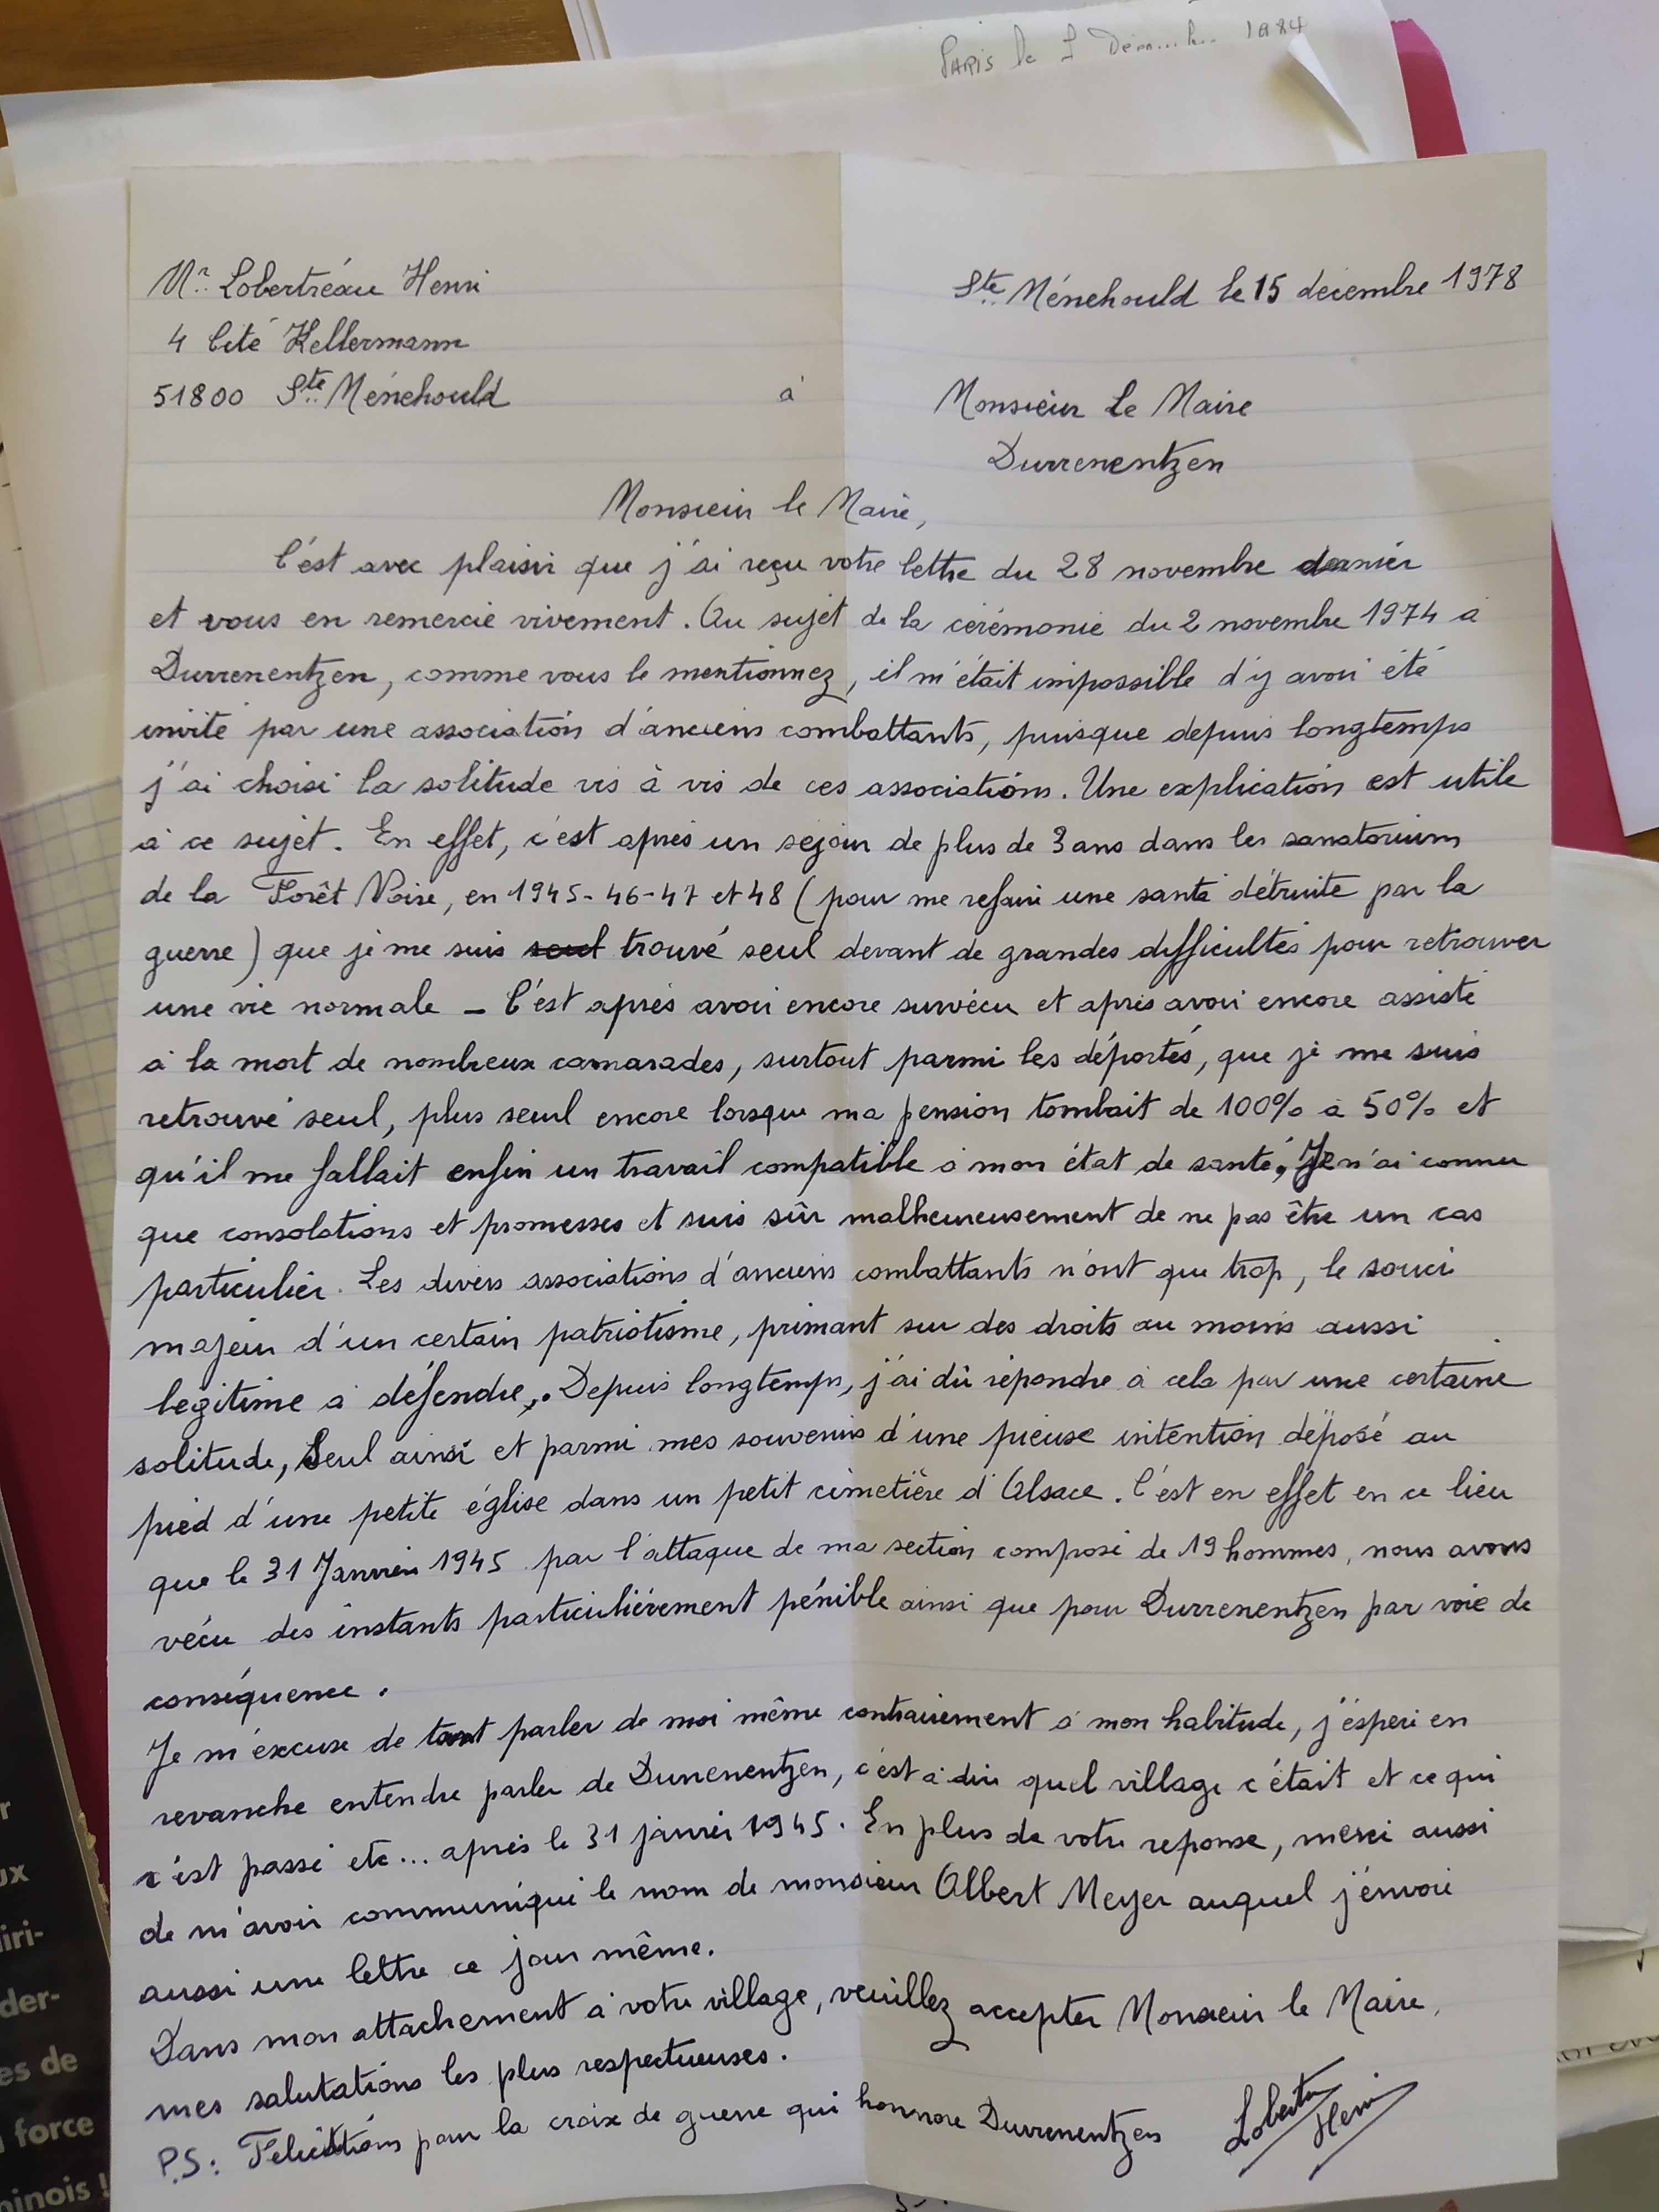 PARIS le 7 1984
Mr. Lobertréau Henri
Ste Ménehould le 15 décembre 1978
4 Cité Kellermann
51800 Ste Ménehould à Monsieur Le Maire
Durrenentzen
Monsieur le Maire,
C'est avec plaisir que j'ai reçu votre lettre du 28 novembre dernier
et vous en remercie vivement. Au sujet de la cérémonie du 2 novembre 1974 à
Durrenentzen, comme vous le mentionnez, il m'était impossible d'y avoir été
invité par une association d'anciens combattants, puisque depuis longtemps
j'ai choisi la solitude vis à vis de ces associations. Une explication est utile
à ce sujet. En effet, c'est après un séjour de plus de 3 ans dans les sanatorium
de la Forêt Noire, en 1945-46-47 et 48 (pour me refaire une santé détruite par la
guerre) que je me suis seul trouvé seul devant de grandes difficultés pour retrouver
une vie normale _ C'est après avoir encore survécu et après avoir encore assisté
à la mort de nombreux camarades, surtout parmi les déportés, que je me suis
retrouvé seul, plus seul encore lorsque ma pension tombait de 100% à 50% et
qu'il me fallait enfin un travail compatible à mon état de santé, Je n'ai connu
que consolations et promesses et suis sûr malheureusement de ne pas être un cas
particulier. Les divers associations d'anciens combattants n'ont que trop, le souci
majeur d'un certain patriotisme, primant sur des droits au moins aussi
légitime à défendre. Depuis longtemps, j'ai dû répondre à cela par une certaine
solitude, Seul ainsi et parmi mes souvenirs d'une pieuse intention déposé au
pied d'une petite église dans un petit cimetière d'Alsace. C'est en effet en ce lieu
que le 31 Janvier 1945 par l'attaque de ma section composé de 19 hommes, nous avons
vécu des instants particulièrement pénible ainsi que pour Durrenentzen par voie de
conséquence.
Je m'excuse de tant parler de moi même contrairement à mon habitude, j'éspère en
revanche entendre parler de Durrenentzen, c'est à dire quel village c'était et ce qui
c'est passé etc... après le 31 janvier 1945. En plus de votre reponse, merci aussi
de m'avoir communiqué le nom de monsieur Albert Meyer auquel j'envoie
aussi une lettre ce jour même.
Dans mon attachement à votre village, veuillez accepter Monsieur le Maire,
mes salutations les plus respectueuses.
P.S: Félicitations pour la croix de guerre qui honnore Durrenentzen
Henri
r
ux
iri-
der-
es de
force
inois !